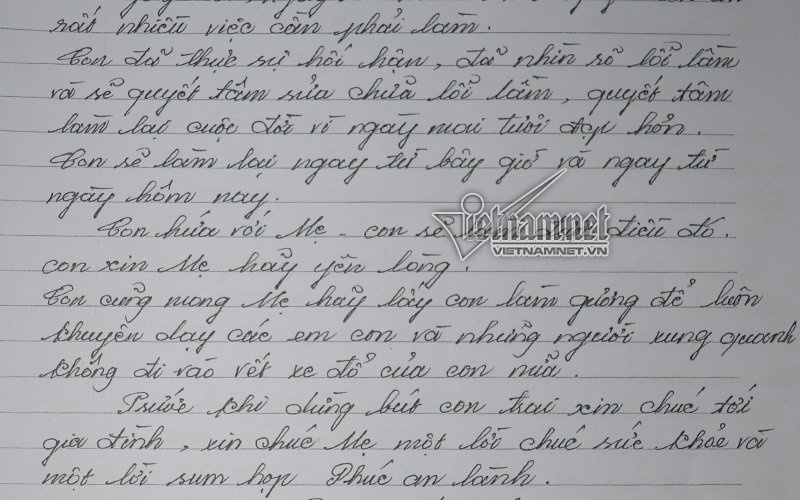 rất nhiều việc cần phải làm.
Con đã thực sự hối hận, đã nhìn rõ lỗi lầm
và sẽ quyết tâm sửa chữa lỗi lầm, quyết tâm
làm lại cuộc đời vì ngày mai tươi đẹp hơn.
Con sẽ làm lại ngay từ bây giờ và ngay từ
ngày hôm nay.
Con hứa với Mẹ - con sẽ làm được điều đó.
Vietnamnet
VIETNAMNET.VN
con xin Mẹ hãy yên lòng.
Con cũng mong Mẹ hãy lấy con làm gương để luôn
khuyên dạy các em con và những người xung quanh
không đi vào vết xe đổ của con nữa.
Trước khi dừng bút con trai xin chúc tới
gia đình, xin chúc Mẹ một lời chúc sức khỏe và
một lời sum họp Phúc an lành.